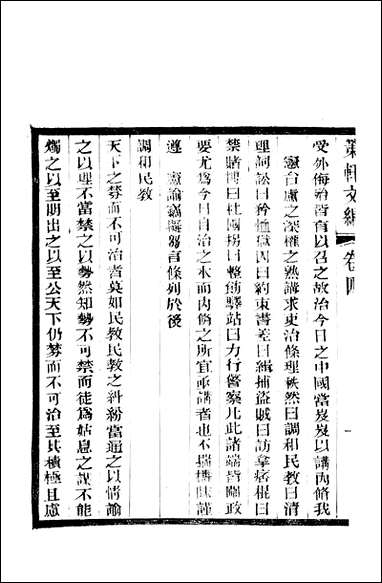 策軒文編 卷四
受外侮治皆有以召之故治今日之中國當岌岌以講內脩我
憲台慮之深權之熟講求吏治條理秩然曰調和民教曰清
理詞訟曰矜恤獄囚曰約束書差曰緝捕盜賊曰訪拿痞棍曰
禁賭博曰杜國拐曰整飭驛站曰力行警察凡此諸端皆關政
要尤為今日自治之本而內脩之所宜亟講者也不揣檮昧謹
遵 憲諭 芻言條列於後
調和民教
天下之棼而不可治者莫如民教民教之糾紛當通之以情諭
之以理不當禁之以勢然知勢不可禁而徒為姑息之謀不能
燭之以至明出之以至公天下仍棼而不可治至其積極且慮